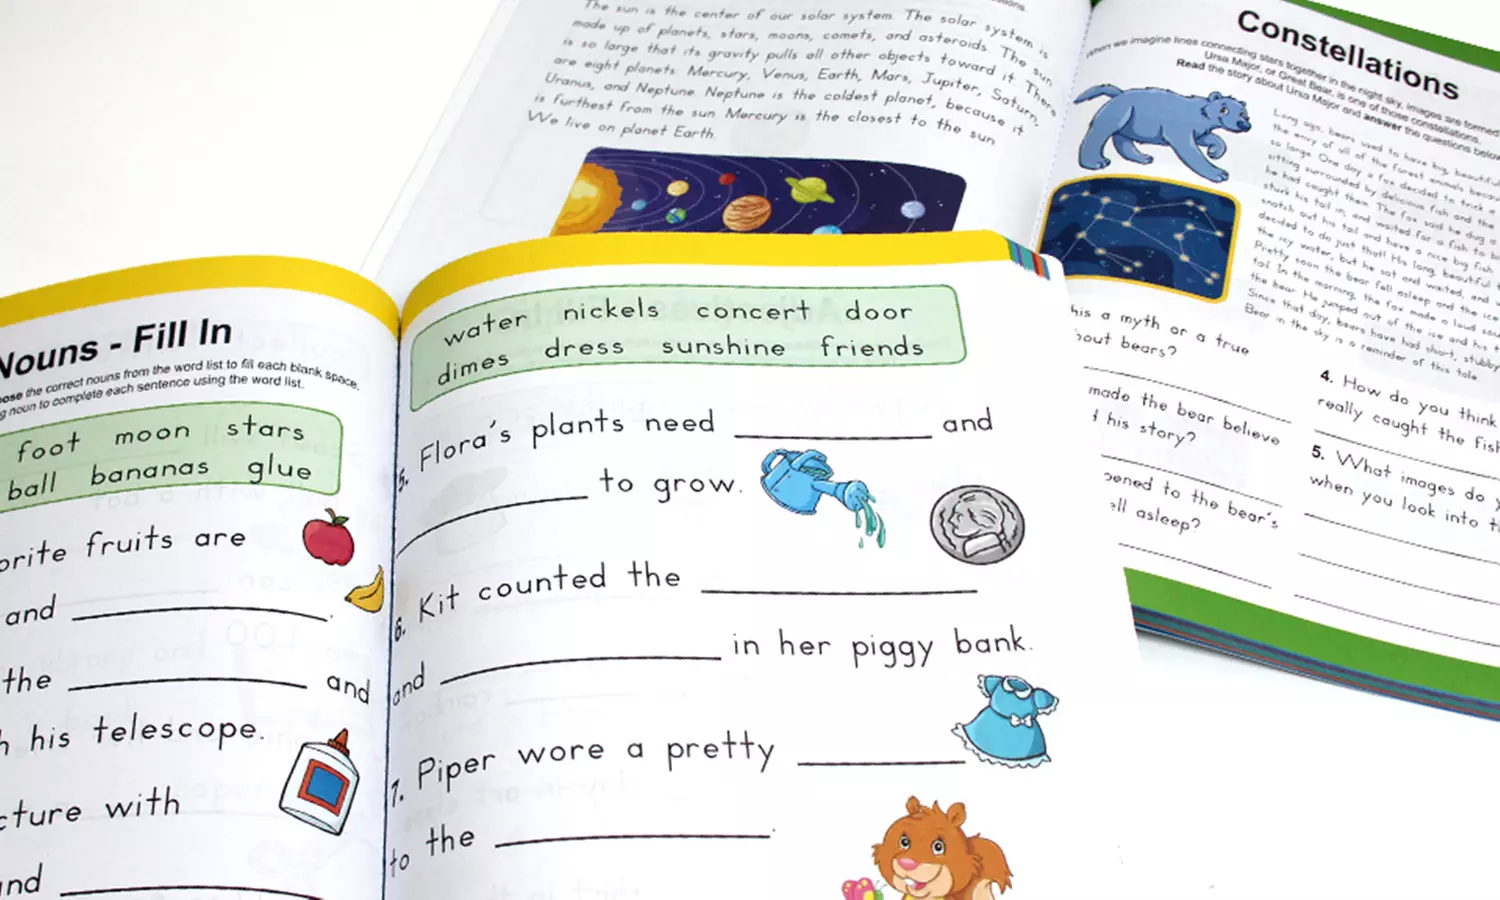 The sun is the center of our solar system. The solar system is
made up of planets, stars, moons, comets, and asteroids. The sun
is so large that its gravity pulls all other objects toward it. There
are eight planets: Mercury, Venus, Earth, Mars, Jupiter, Saturn,
Uranus, and Neptune. Neptune is the coldest planet, because it
is furthest from the sun. Mercury is the closest to the sun.
We live on planet Earth.
Constellations
When we imagine lines connecting stars together in the night sky, images are formed
Ursa Major, or Great Bear, is one of those constellations.
Read the story about Ursa Major and answer the questions below
Long ago, bears used to have big, beautiful
the envy of all of the forest animals because
so large. One day a fox decided to trick a
sitting surrounded by delicious fish and the
he had caught them. The fox said he dug a
stuck his tail in, and waited for a fish to bi
snatch out his tail and have a nice big fish
decided to do just that! His long, beautiful t
the icy water, but he sat and waited, and w
Pretty soon the bear fell asleep and the ice
tail. In the morning, the fox made a loud sou
the bear. He jumped out of the ice and his t
Since that day, bears have had short, stubby
Bear in the sky is a reminder of this tale
his a myth or a true
bout bears?
made the bear believe
his story?
pened to the bear's
ell asleep?
4. How do you think
really caught the fish
5. What images do y
when you look into t
Nouns - Fill In
ose the correct nouns from the word list to fill each blank space.
g noun to complete each sentence using the word list.
foot moon stars
ball bananas glue
orite fruits are
and
the and
h his telescope.
cture with
nd
water nickels concert door
dimes dress sunshine friends
5. Flora's plants need and
to grow.
6. Kit counted the
and in her piggy bank.
7. Piper wore a pretty
to the .